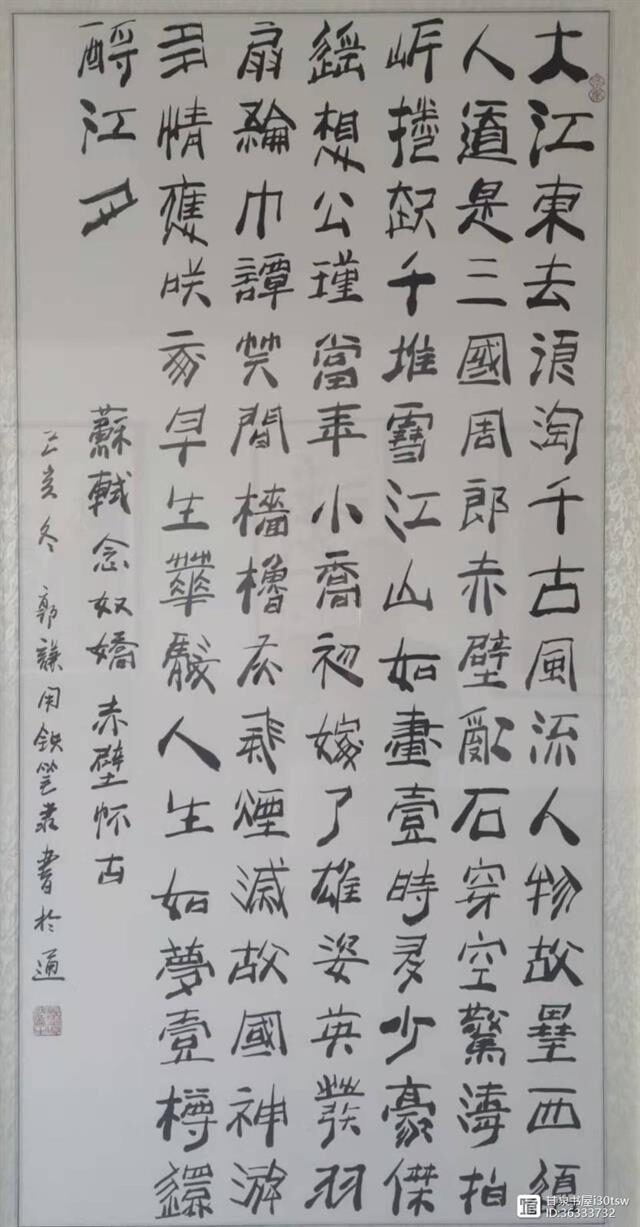 大江東去浪淘千古風流人物故壘西
人道是三國周郎赤壁亂石穿空驚濤拍
岍捲起千堆雪江山如畫壹時多少豪傑
遙想公瑾當年小喬初嫁了雄姿英發羽
扇綸巾譚笑間檣櫓灰飛煙滅故國神游
多情應咲我早生華髮人生如夢壹樽還
酹江月
蘇軾念奴嬌赤壁怀古
己亥冬郭謙用鉄筆隶書於通
甘泉书屋i30tsw
ID:36333732